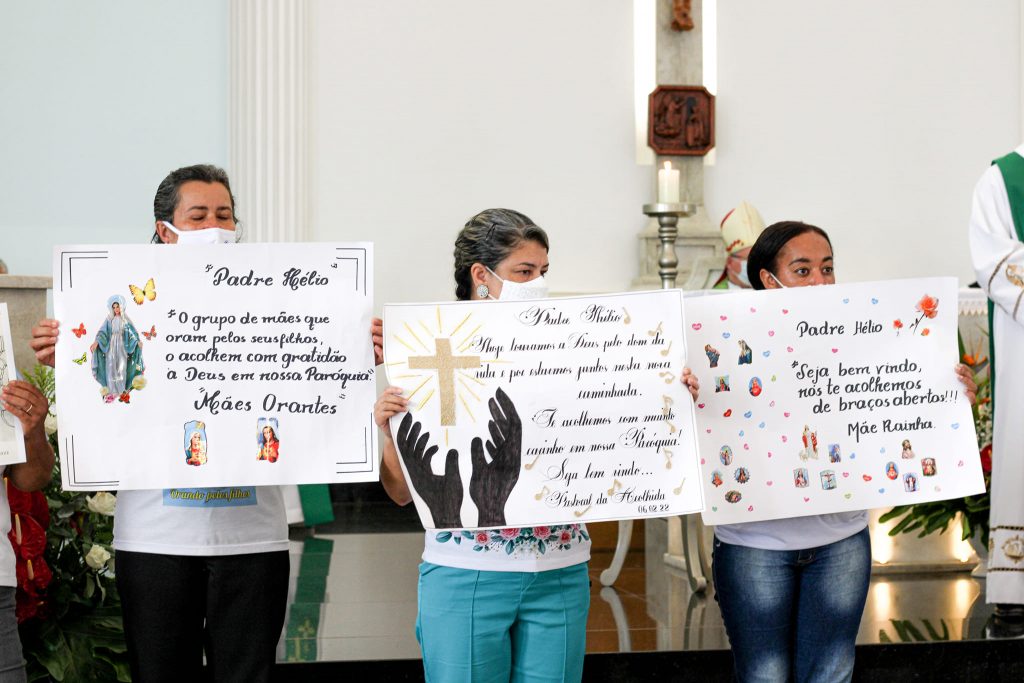 "Padre Hélio"
"O grupo de mães que
oram pelos seus filhos,
o acolhem com gratidão
a Deus em nossa Paróquia."
"Mães Orantes"
Orando pelos
Padre Hélio
Hoje louvamos a Deus pelo dom da
vida e por estarmos juntos nesta nova
caminhada.
Te acolhemos com muito
carinho em nossa Paróquia!
Seja bem vindo...
Pastoral da Acolhida
06.02.22
Padre Hélio
"Seja bem vindo,
nós te acolhemos
de braços abertos!!!
Mãe Rainha.